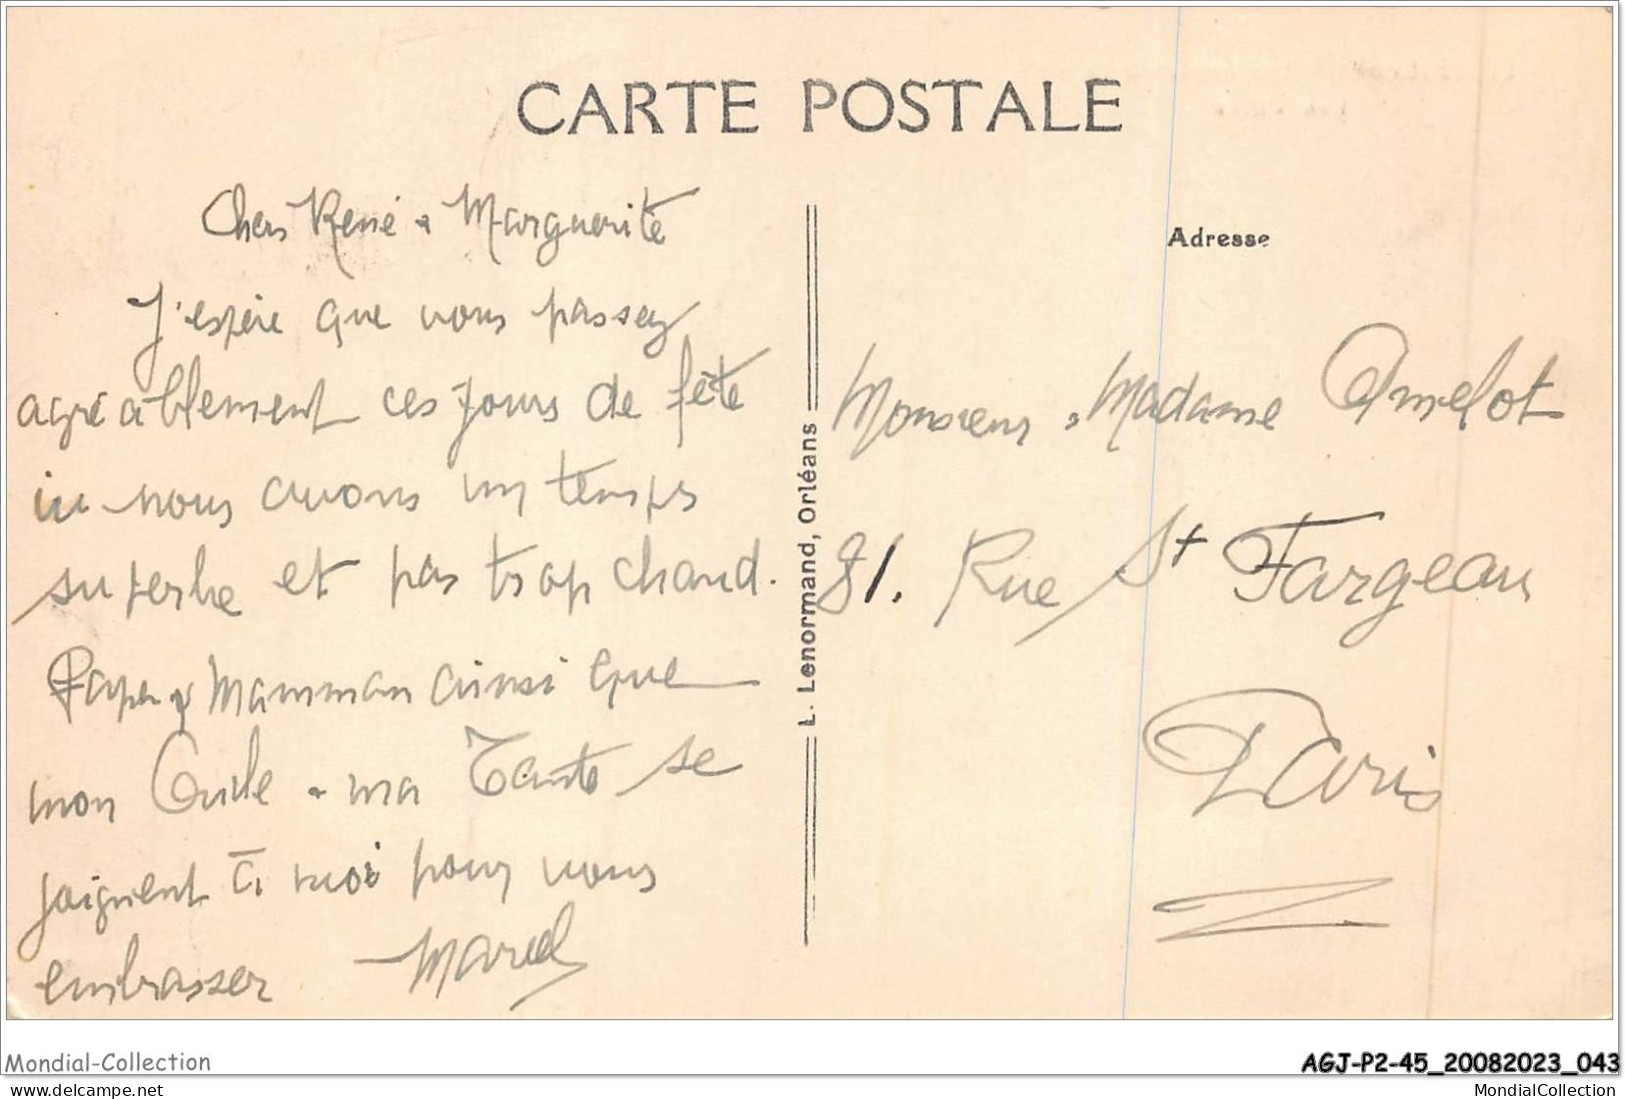 CARTE POSTALE
Chers René & Marguerite
J'espère que vous passez
agréablement ces jours de fête
ici nous avons un temps
superbe et pas trop chaud.
Papa & Mamman ainsi que
mon Oncle & ma Tante se
joignent à moi pour vous
embrasser Marcel
L. Lenormand, Orléans
Adresse
Monsieur & Madame Amelot
81. Rue St Fargeau
Paris
Mondial-Collection
AGJ-P2-45_20082023_043
www.delcampe.net
MondialCollection